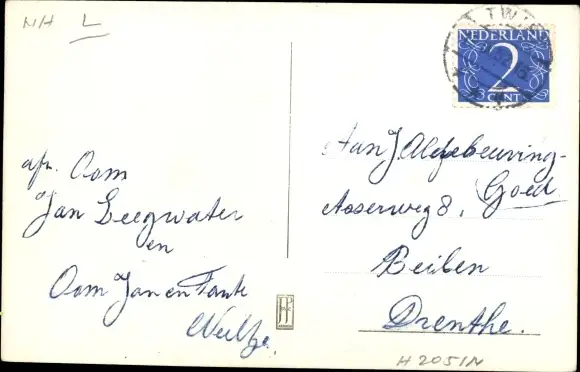 NH L
NEDERLAND
2
CENT
afz. Oom
Jan Leegwater
en
Oom Jan en Tante
Aan J
Goed
Asserweg 8,
Beilen
Drenthe.
H 2051N